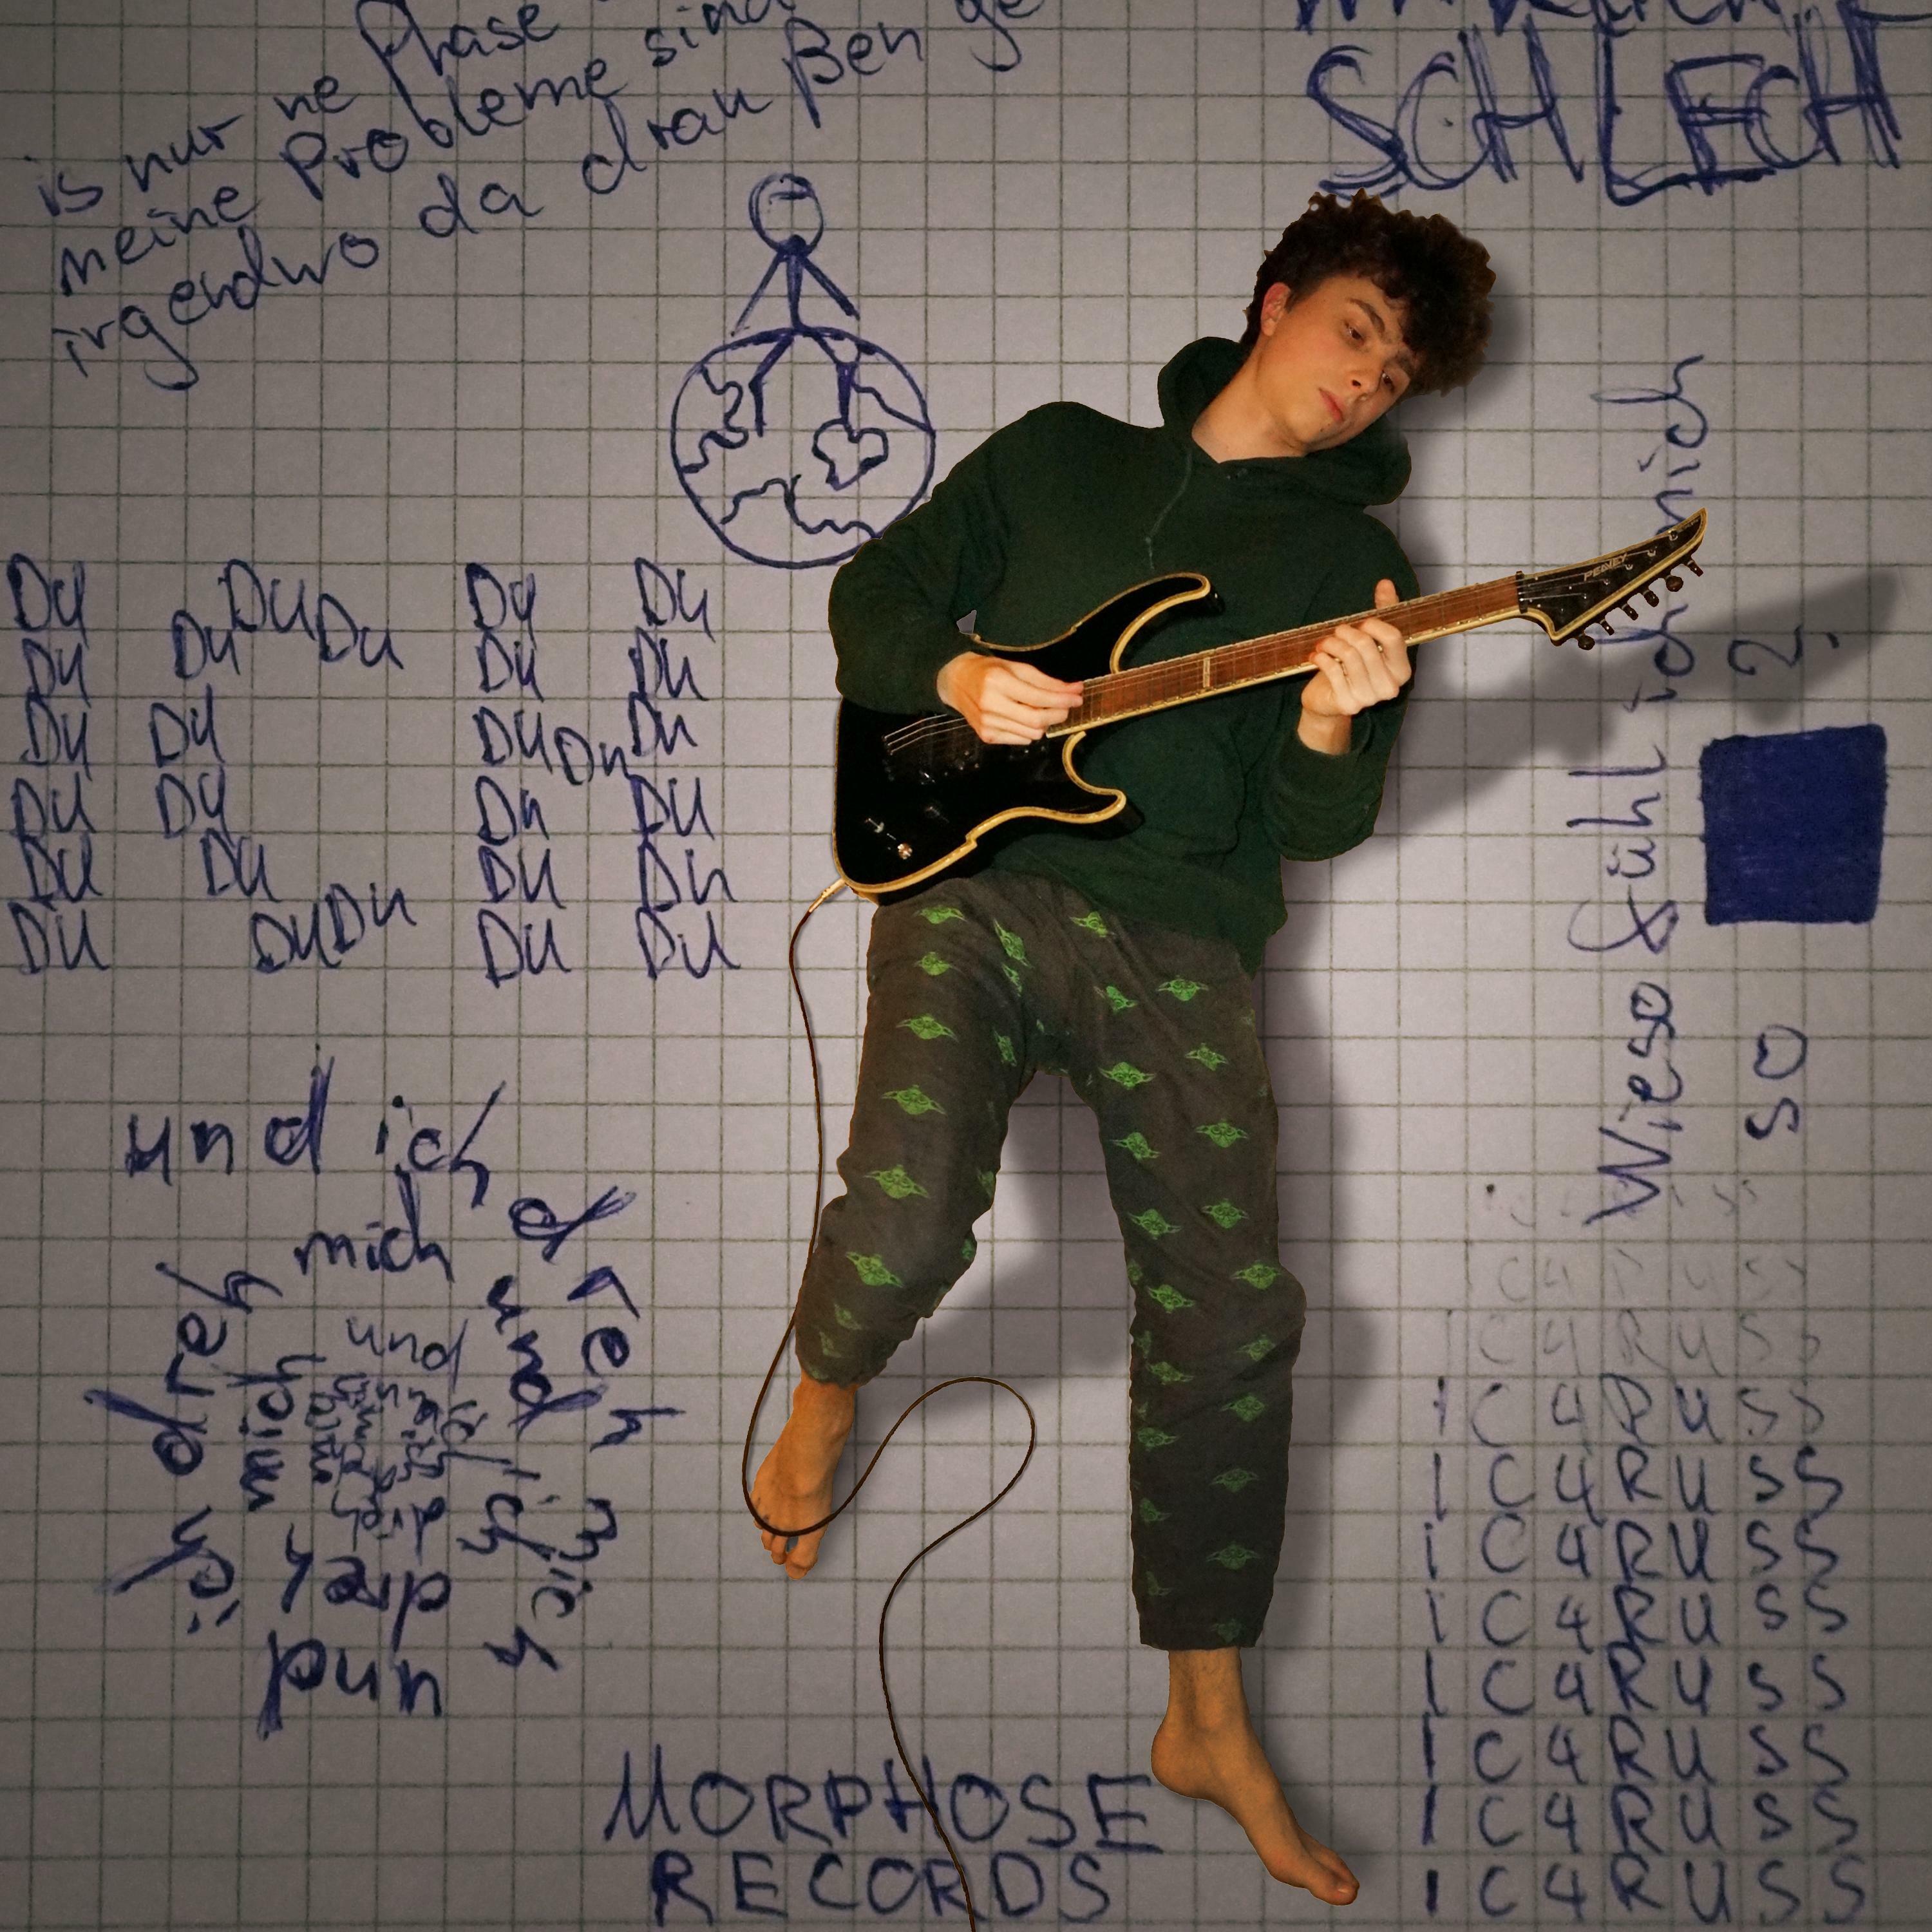 is nur ne Phase
meine Probleme sind
irgendwo da draußen ge
SCHLECH
Du Du Du Du
Du Du Du Du Du
Du Du Du Du Du
Du Du Du Du
Du Du Du Du
Du Du Du Du Du
PEAVEY
Wieso fühl ich mich
so ?
und ich dreh mich und ich dreh mich
und ich dreh mich und
C4RUSS
IC4RUSS
IC4RUSS
IC4RUSS
IC4RUSS
IC4RUSS
IC4RUSS
IC4RUSS
IC4RUSS
IC4RUSS
MORPHOSE
RECORDS